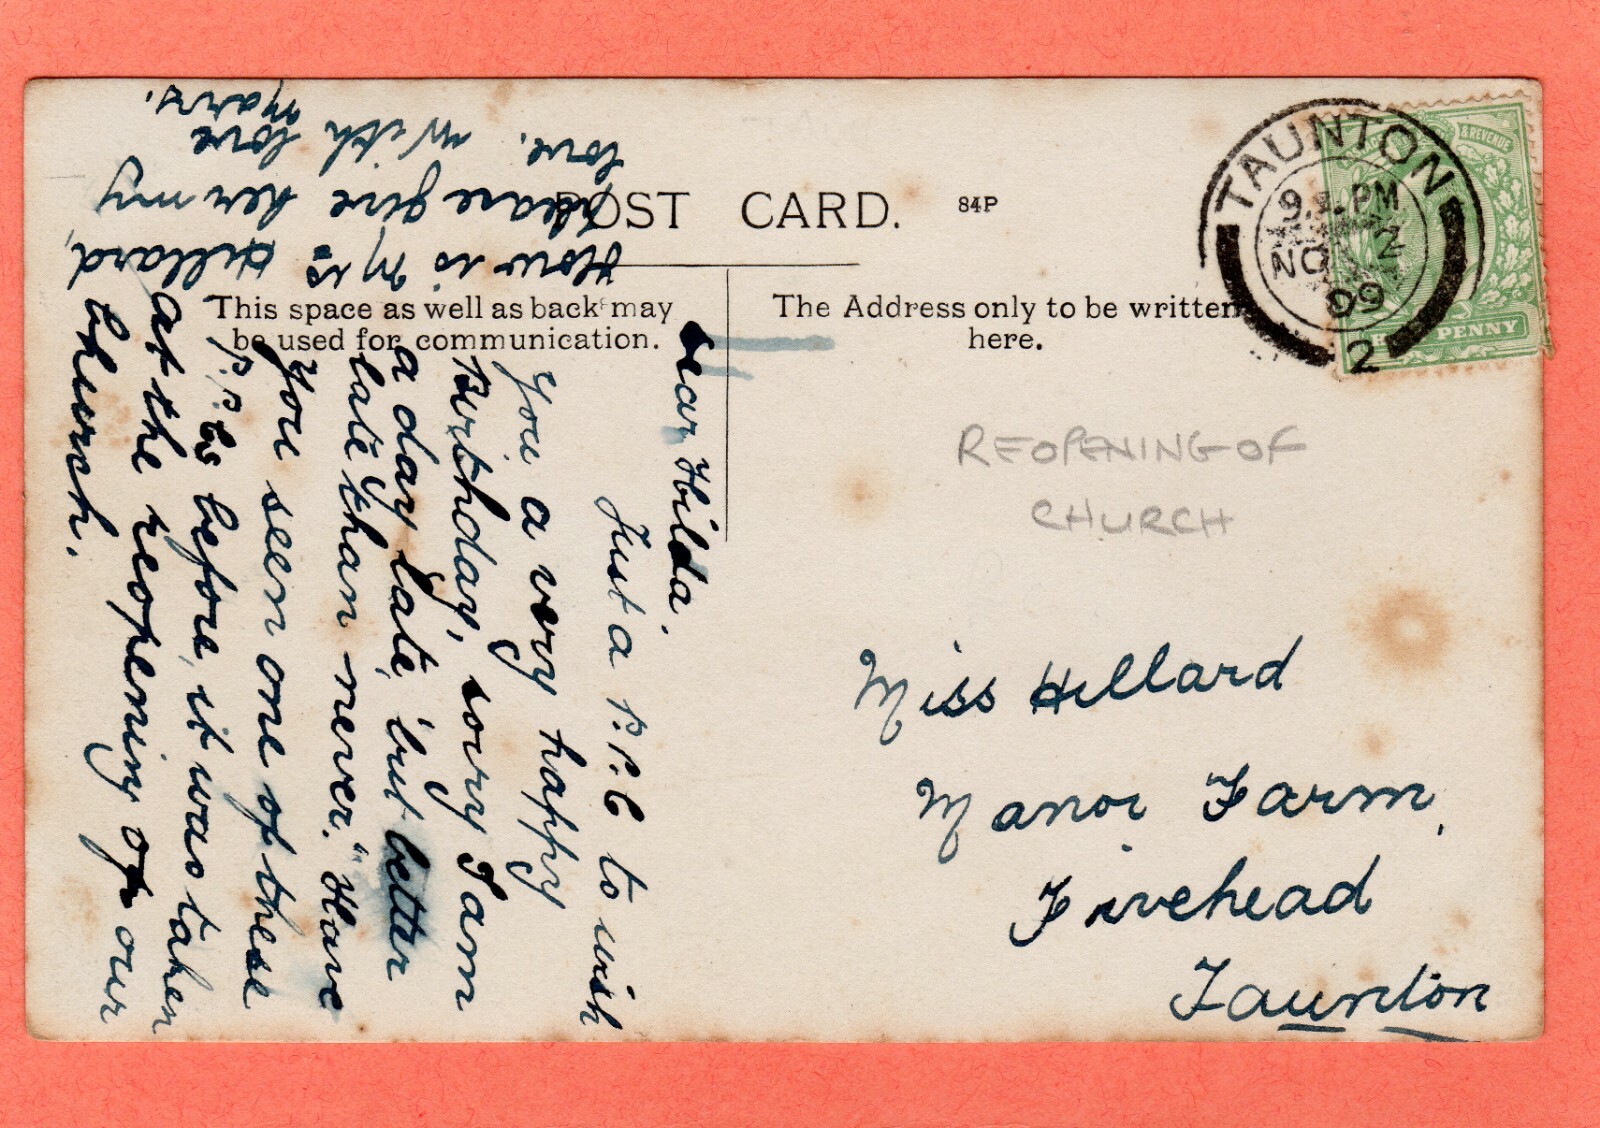 POST CARD.
84P
This space as well as back may
be used for communication.
The Address only to be written
here.
TAUNTON
PM
NO 2
09
2
& REVENUE
PENNY
REOPENING OF
CHURCH
Miss Hillard
Manor Farm,
Fivehead
Taunton
Dear Hilda.
Just a P.P.C to wish
you a very happy
Birthday, sorry I am
a day late, but better
late than never." Have
you seen one of these
P.P.Cs before, it was taken
at the reopening of our
Church.
How is Mrs Hillard,
please give her my
love. With love
Mars.